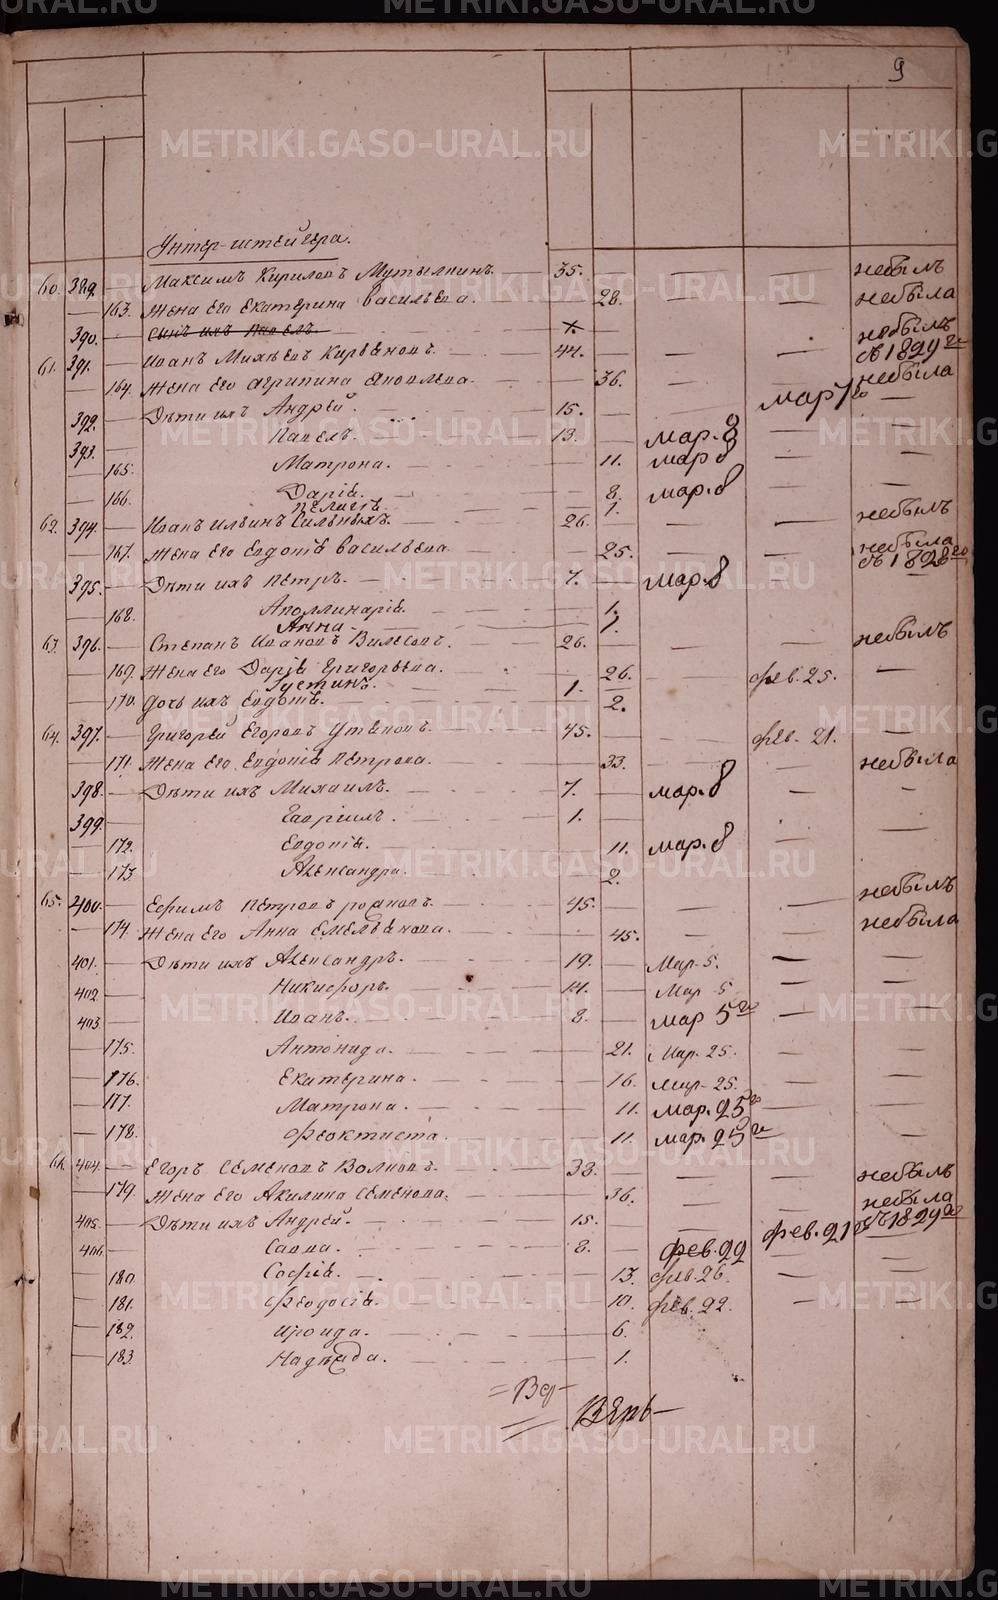 9
Унтер-штейгера.
60. 389. Максимъ Кириловъ Мутылкинъ. 35. — — небылъ
163. Жена его Екатерина Васильева. 28. — — небыла
390. Сынъ ихъ Павелъ
61. 391. Иванъ Михѣевъ 44. — — небылъ съ 1829 го
164. Жена его Агрипина Яковлева. 36. — — небыла
392. Дѣти ихъ Андрей. 15. — мар 7 го —
393. Павелъ. 13. мар. 8 — —
165. Матрона. 11. мар 8 — —
166. Дарiя. 8. мар. 8 — —
Пелагiя 1.
62. 394. Иванъ Ильинъ Сильныхъ. 26. — — небылъ
167. Жена его Евдокiя Васильева. 25. — — небыла съ 1828 го
395. Дѣти ихъ Петръ. 7. мар. 8 — —
168. Аполлинарiя. 1.
Анна 1.
63. 396. Степанъ Ивановъ Вилесовъ. 26. — — небылъ
169. Жена его Дарiя Григорьева. 26. — фев. 25. —
Густинъ. 1.
170. Дочь ихъ Евдокiя. 2.
64. 397. Григорей Егоровъ Утяновъ. 45. — фев. 21. —
171. Жена его Евдокiя Петрова. 33. — — небыла
398. Дѣти ихъ Михаилъ. 7. мар. 8 — —
399. Гаврiилъ. 1. — —
172. Евдокiя. 11. мар. 8 — —
173. Александра. 2.
65. 400. Ефимъ Петровъ 45. — — небылъ
174. Жена его Анна Емельянова. 45. — — небыла
401. Дѣти ихъ Александръ. 19. Мар. 5. — —
402. Никифоръ. 14. Мар 5 — —
403 Иванъ. 8. мар 5 го — —
175. Антонида. 21. Мар. 25. — —
176. Екатерина. 16. мар. 25. — —
177. Матрона. 11. мар. 25 го — —
178. Феоктиста. 11. мар. 25 го — —
66. 404. Егоръ Семеновъ Волковъ. 38. — — небылъ
179. Жена его Акилина Семенова. 36. — — небыла съ 1829 го
405. Дѣти ихъ Андрей. 15. — фев. 21 го —
406. Савва. 8. фев. 22 — —
180. Софiя. 13. фев. 26. — —
181. Феодосiя. 10. фев. 22. — —
182. Ироида. 6.
183. Надѣжда. 1.
= Вѣр — Вѣрь —